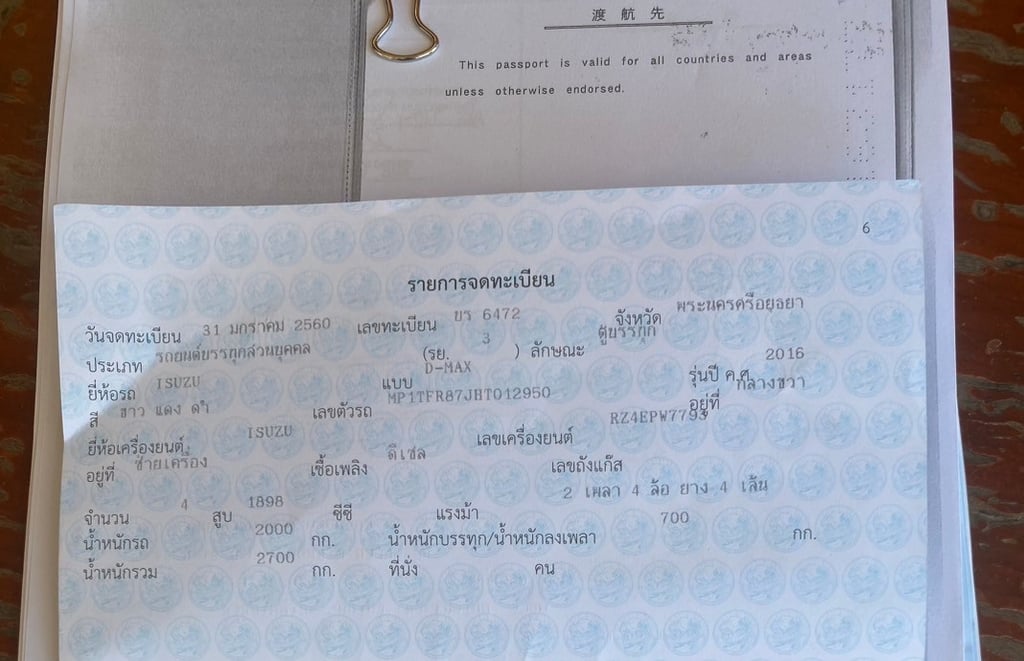 渡航先
This passport is valid for all countries and areas
unless otherwise endorsed.
6
รายการจดทะเบียน
วันจดทะเบียน 31 มกราคม 2560 เลขทะเบียน บร 6472 จังหวัด พระนครศรีอยุธยา
ประเภท รถยนต์บรรทุกส่วนบุคคล (รย. 3 ) ลักษณะ ตู้บรรทุก
ยี่ห้อรถ ISUZU แบบ D-MAX รุ่นปี ค.ศ. 2016
สี ขาว แดง ดำ เลขตัวรถ MP1TFR87JHT012950 อยู่ที่ กลางขวา
ยี่ห้อเครื่องยนต์ ISUZU เลขเครื่องยนต์ RZ4EPW7793
อยู่ที่ ซ้ายเครื่อง เชื้อเพลิง ดีเซล เลขถังแก๊ส
จำนวน 4 สูบ 1898 ซีซี แรงม้า 2 เพลา 4 ล้อ ยาง 4 เส้น
น้ำหนักรถ 2000 กก. น้ำหนักบรรทุก/น้ำหนักลงเพลา 700 กก.
น้ำหนักรวม 2700 กก. ที่นั่ง คน